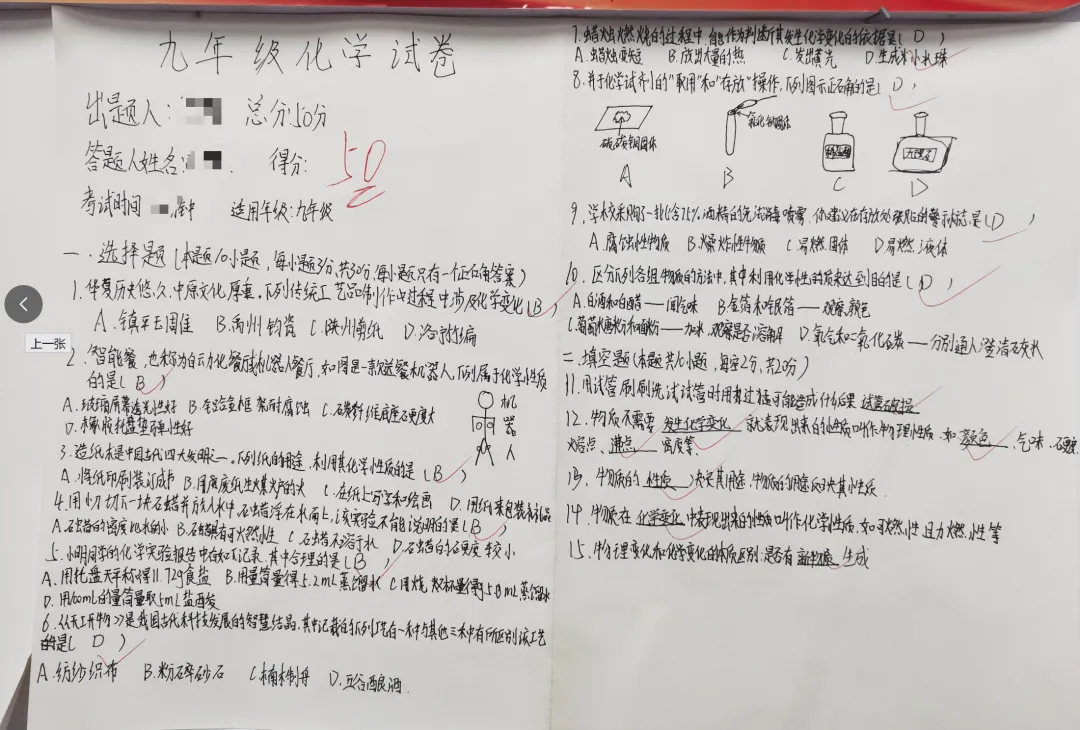 九年级化学试卷
出题人: 总分:50分
答题人姓名: 得分: 50
考试时间 钟 适用年级:九年级
一.选择题(本题10小题,每小题3分,共30分.每小题只有一个正确答案)
1.华夏历史悠久.中原文化厚重.下列传统工艺品制作过程中涉及化学变化(B)
A.镇平玉雕 B.禹州钧瓷 C. 州剪纸 D.洛 竹编
2.智能餐,也称为自动化餐厅或机器人餐厅,如图是一款送餐机器人,下列属于化学性质
的是(B)
机器人
A.玻璃屏幕透光性好 B.合金框架耐腐蚀 C.碳纤维底座硬度大
D.橡胶托盘垫弹性好
3.造纸术是中国古代四大发明之一.下列纸的用途,利用其化学性质的是(B)
A.将纸印刷装订成书 B.用废纸生火 的火 C.在纸上写字和绘画 D.用纸来包装礼品
4.用小刀切下一块石蜡并放入水中石蜡浮在水面上,该实验不能说明的是(B)
A.石蜡的密度比水的小 B.石蜡具有可燃性 C.石蜡不溶于水 D.石蜡的硬度较小
5.小明同学的化学实验报告中有如下记录,其中合理的是(B)
A.用托盘天平称得11.72g食盐 B.用量筒量得5.2mL蒸馏水 C.用烧杯量得5.8mL蒸馏水
D.用100mL的量筒量取5mL盐酸
6.《天工开物》是我国古代科技发展的智慧结晶.其中记载的下列工艺有一种与其他三种有所区别该工艺
的是(D)
A.纺纱织布 B.粉碎砂石 C.楠木制舟 D.五谷酿酒.
7.蜡烛燃烧的过程中,能作为判断其发生化学变化的依据是(D)
A.蜡烛变短 B.放出大量的热 C.发出黄光 D.生成小水珠
8.关于化学试剂的“取用”和“存放”操作,下列图示正确的是(D)
硫酸铜固体
氧化铜固体
A B C D
9.学校采购了一批含75%酒精的免洗消毒喷雾.你建议在存放处张贴的警示标志是(D)
A.腐蚀性物质 B.爆炸性物质 C.易燃固体 D.易燃液体
10.区分下列各组物质的方法中,其中利用化学性质来达到目的是(D)
A.白酒和白醋——闻气味 B.金箔和银箔——观察颜色
C.葡萄糖粉和面粉——加水,观察是否溶解 D.氧气和二氧化碳——分别通入澄清石灰水
二.填空题(本题共小题,每空2分,共20分)
11.用试管刷刷洗试管时用力过猛可能造成什么后果 试管破损
12.物质不需要发生化学变化就表现出来的性质叫作物理性质.如颜色、气味、硬度
熔点、沸点、密度等.
13.物质的性质决定其用途,物质的用途反映其性质.
14.物质在化学变化中表现出来的性质叫作化学性质,如可燃性且力燃性等
15.物理变化和化学变化的本质区别:是否有新物质生成
上一张